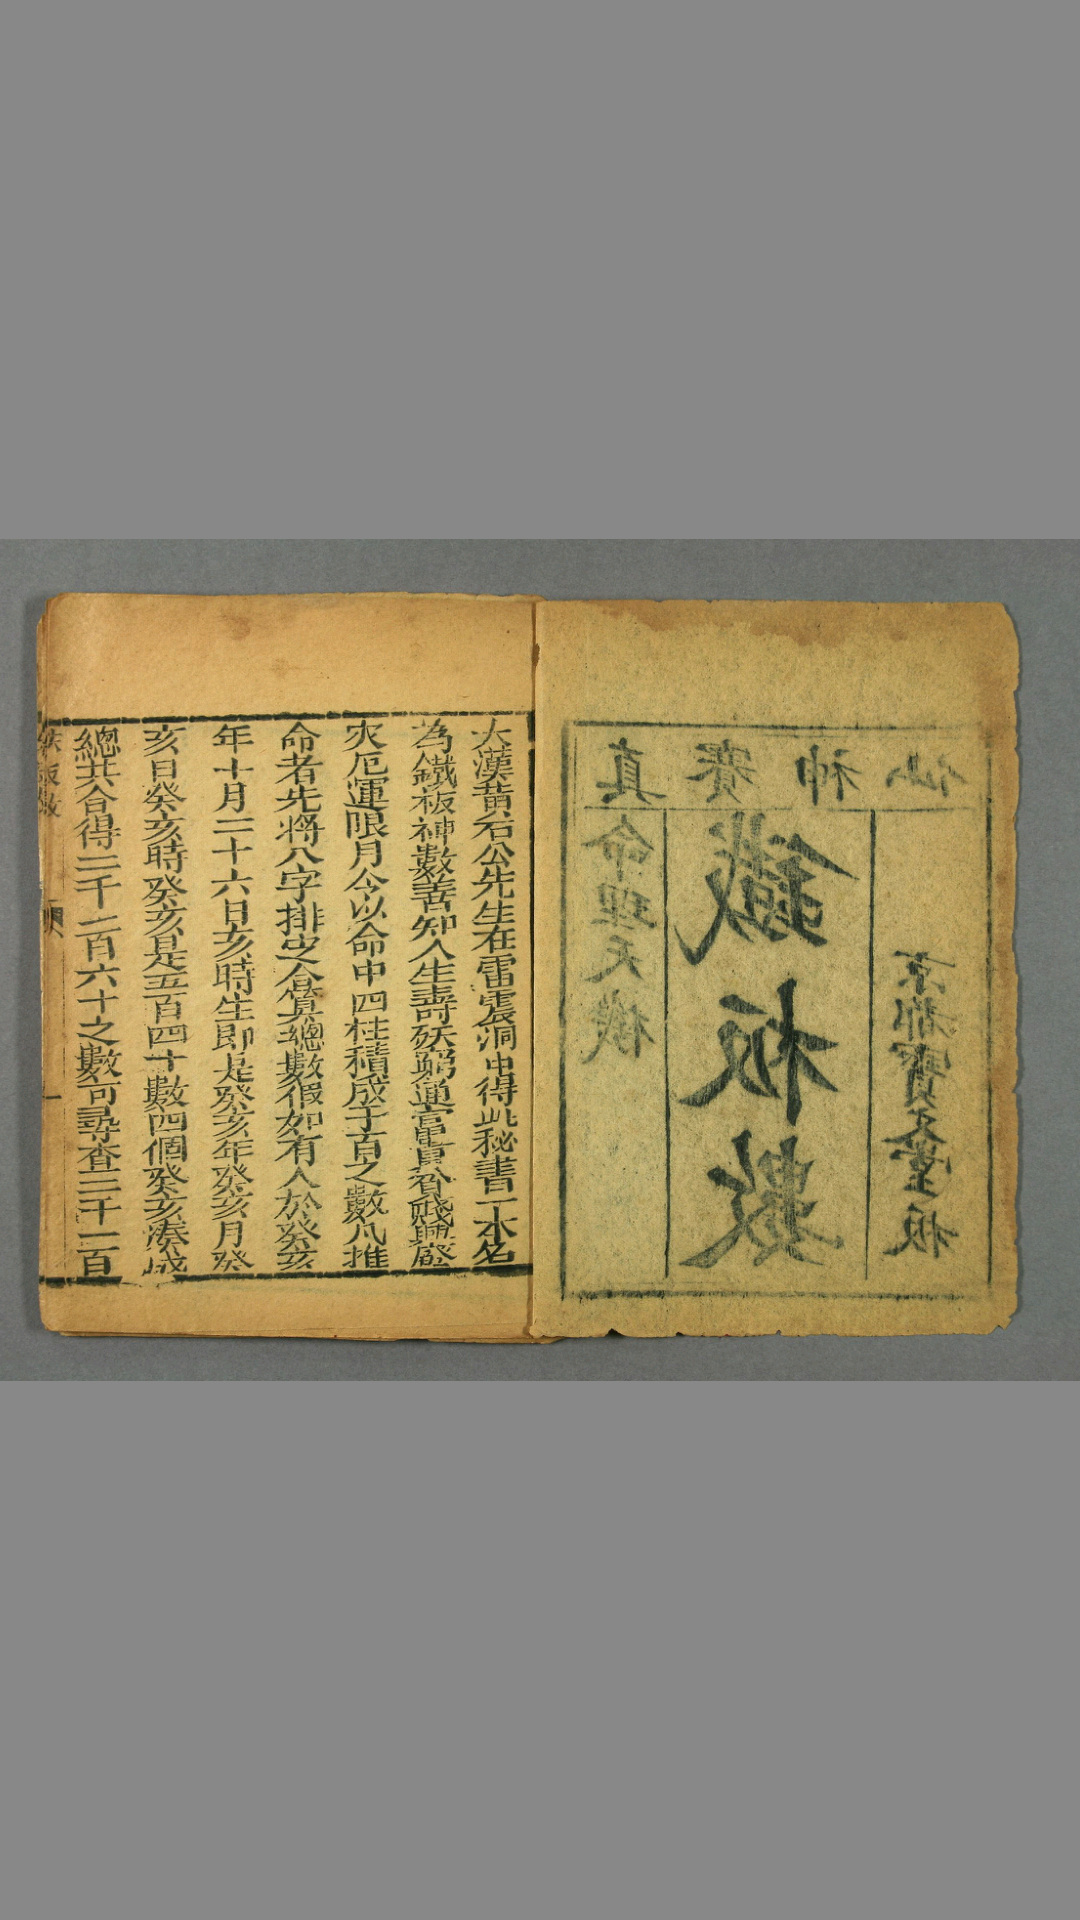 真賽神仙
命理天機
鐵板數
京都寶文堂板
大漢黄石公先生在雷震洞中得此秘書一本名
為鐵板神數善知人生壽殀窮通富貴貧賤興廢
灾厄運限月令以命中四柱積成千百之數凡推
命者先將八字排定合算總數假如有人於癸亥
年十月二十六日亥時生即是癸亥年癸亥月癸
亥日癸亥時癸亥是五百四十數四個癸亥湊成
總共合得二千一百六十之數可尋查二千一百
板數 一